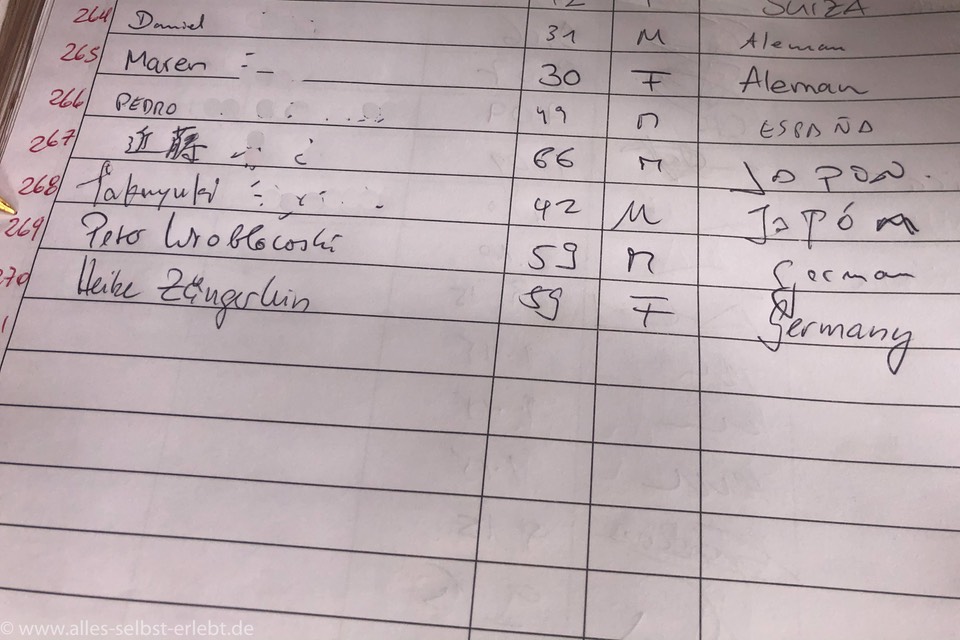 SUIZA
264 Daniel 31 M Aleman
265 Maren 30 F Aleman
266 PEDRO 49 M ESPAÑA
267 近藤 66 M JAPON.
268 Takuyuki 42 M JAPÓN
269 Peter Wroblowski 59 M German
270 Heike Zängerlein 59 F Germany
1
© www.alles-selbst-erlebt.de